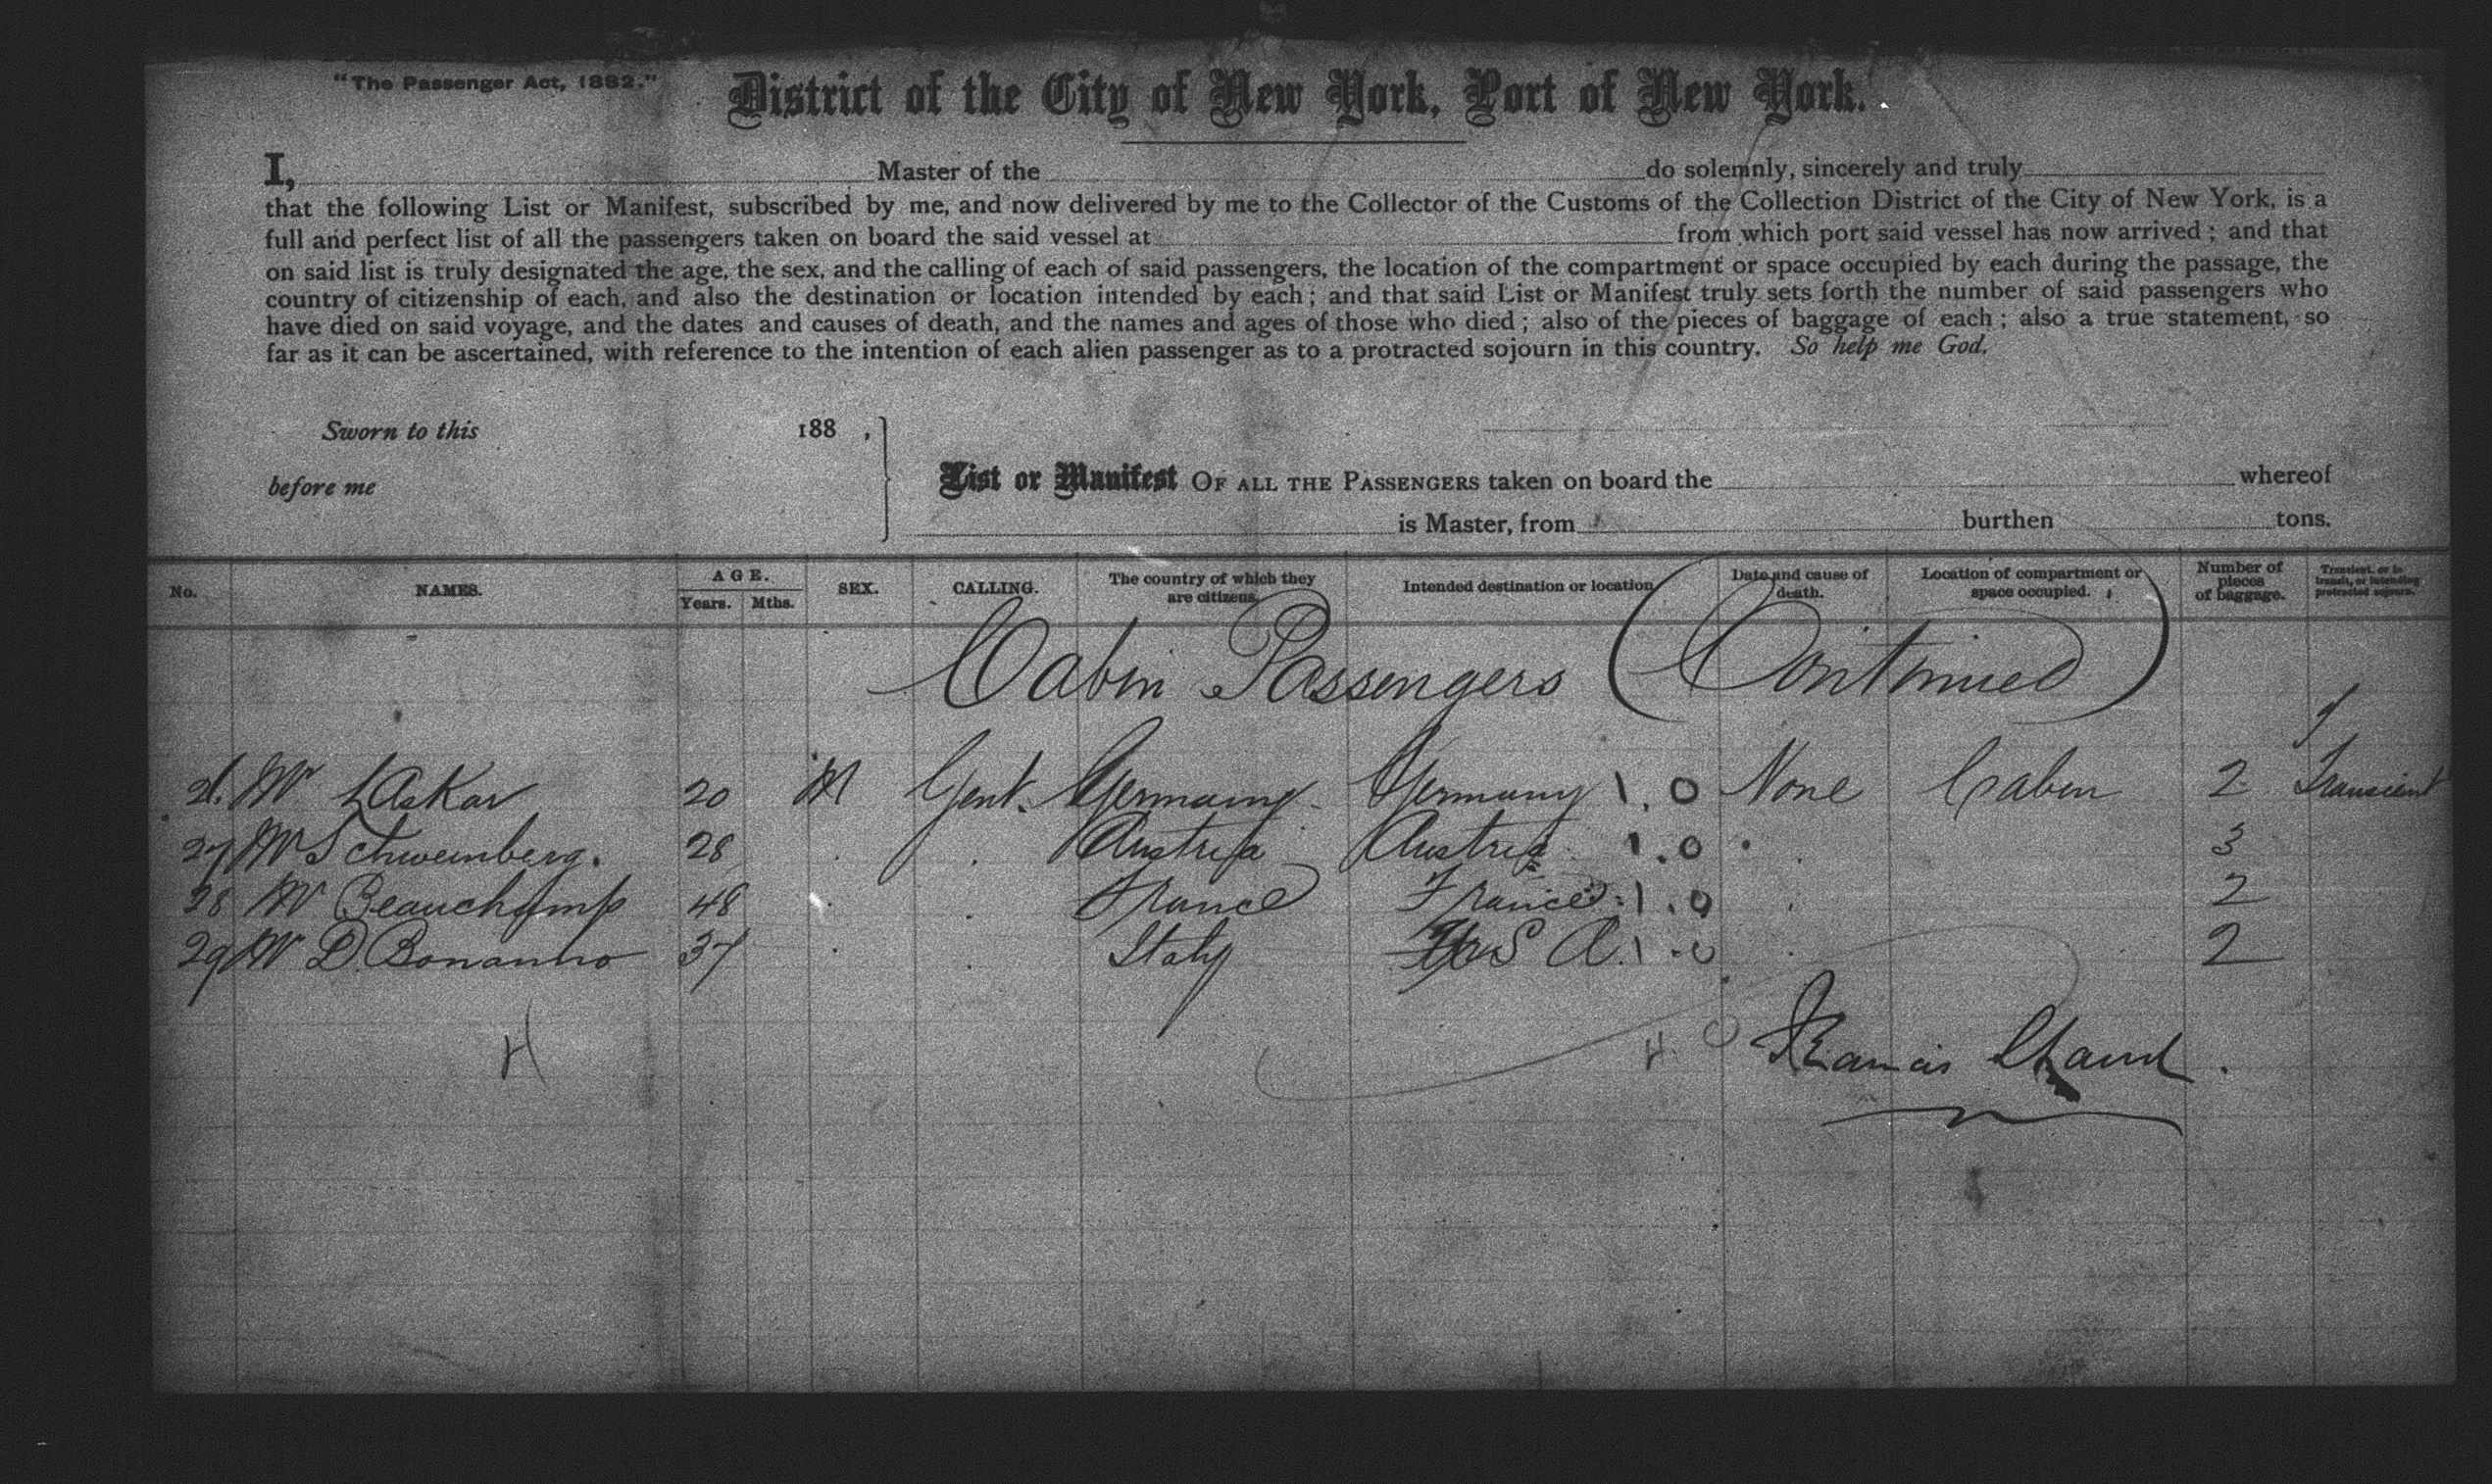 "The Passenger Act, 1882."
District of the City of New York, Port of New York.
I, Master of the do solemnly, sincerely and truly
that the following List or Manifest, subscribed by me, and now delivered by me to the Collector of the Customs of the Collection District of the City of New York, is a
full and perfect list of all the passengers taken on board the said vessel at from which port said vessel has now arrived; and that
on said list is truly designated the age, the sex, and the calling of each of said passengers, the location of the compartment or space occupied by each during the passage, the
country of citizenship of each, and also the destination or location intended by each; and that said List or Manifest truly sets forth the number of said passengers who
have died on said voyage, and the dates and causes of death, and the names and ages of those who died; also of the pieces of baggage of each; also a true statement, so
far as it can be ascertained, with reference to the intention of each alien passenger as to a protracted sojourn in this country. So help me God.
Sworn to this 188 ,
before me
List or Manifest OF ALL THE PASSENGERS taken on board the whereof
is Master, from burthen tons.
No. NAMES. AGE. Years. Mths. SEX. CALLING. The country of which they are citizens. Intended destination or location Date and cause of death. Location of compartment or space occupied. Number of pieces of baggage. Transient, or in transit, or intending protracted sojourn.
Cabin Passengers (Continued)
Mr Laskar 20 M Gent. Germany Germany 1.0 None Cabin 2 Transient
27 Mr Schweinberg. 28 Austria Austria 1.0 3
28 Mr Beauchamp 48 France France 1.0 2
29 Mr D. Bonanno 37 Italy U S A. 1.0 2
4 0
Francis